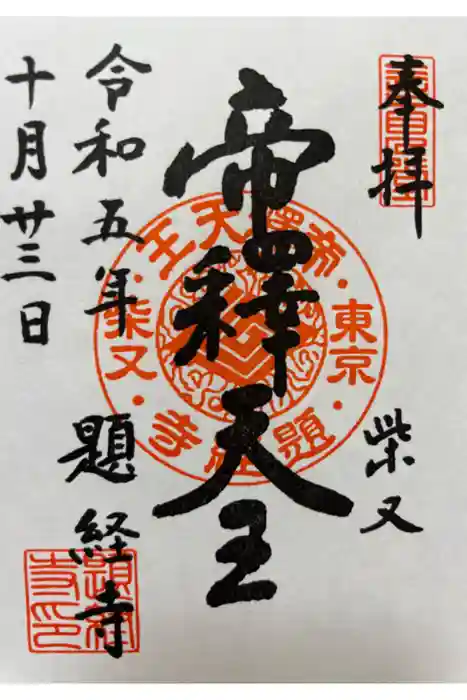 奉拝
柴又
帝釋天王
令和五年
題経寺
十月廿三日
帝釋天王
東京
柴又
題経寺
題経寺印